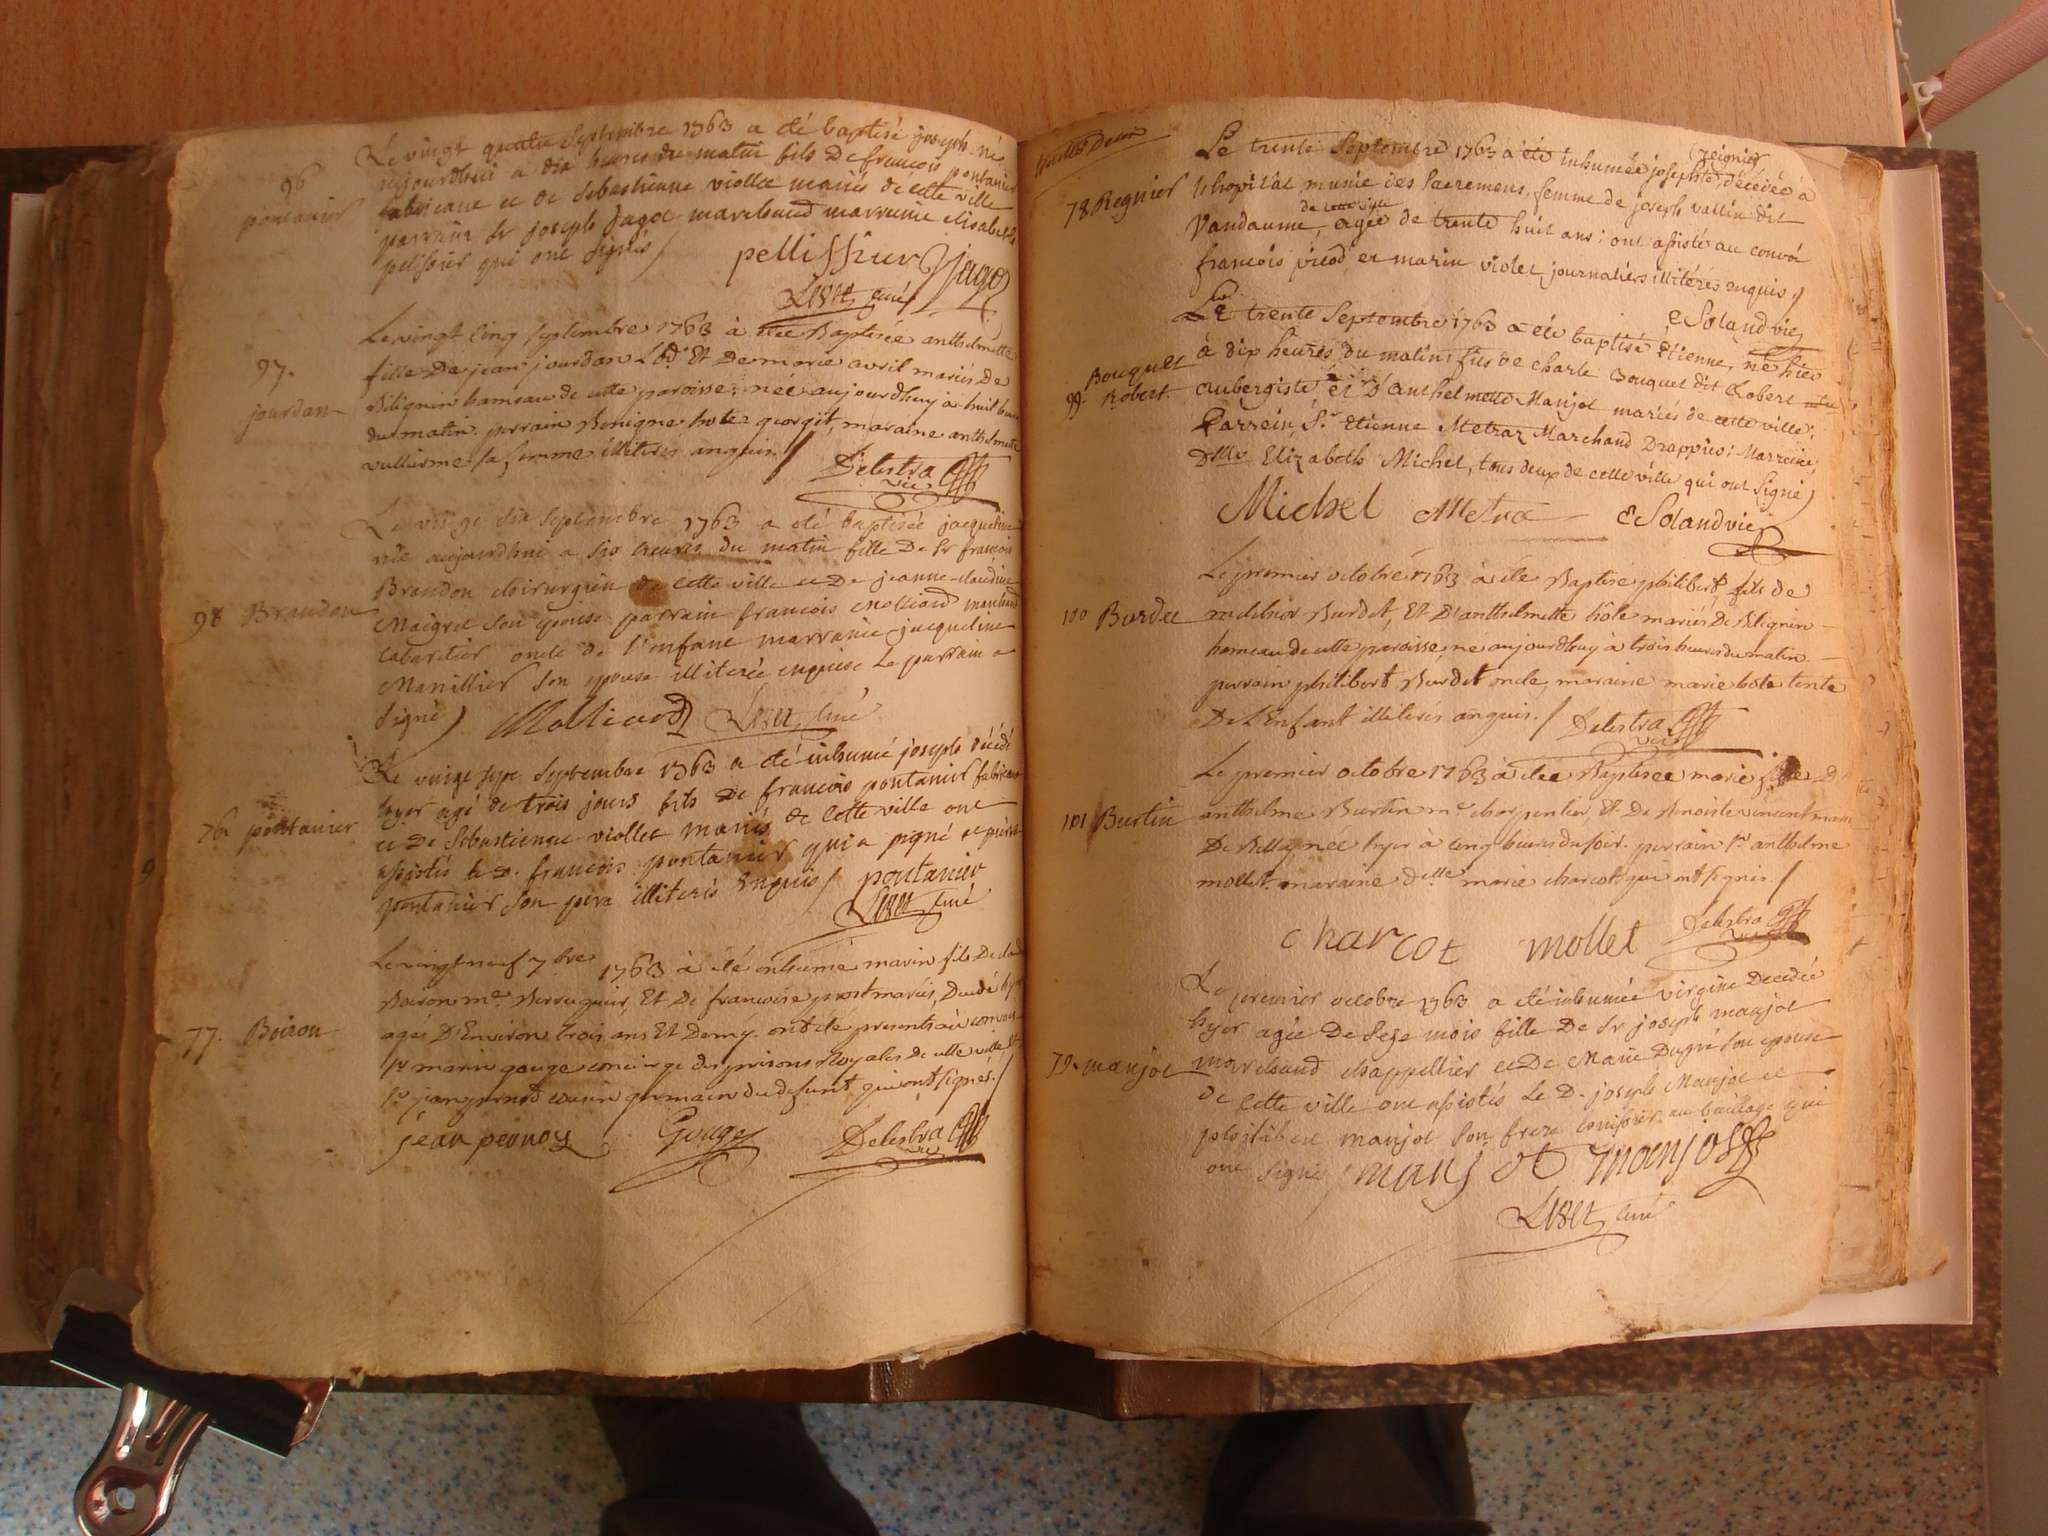 96
pontanier
Le vingt quatre Septembre 1763 a été baptisé joseph né
aujourdhui a dix heures du matin fils De francois pontanier
fabricant et de Sebastienne viollet mariés de cette ville
parrain Sr joseph Jagot marchand marraine elisabeth
pelissier qui ont signés /
pellissier Jago
Livet curé
97.
jourdan
Le vingt cinq septembre 1763 à été Baptisée anthelmette
fille De jean jourdan Et De marie avril mariés De
Bilignin hameau de cette paroisse, née aujourdhuy à huit heures
du matin. parrain Benigne hote georgit, maraine anthelmette
vullierme sa femme illiterés enquis. /
Delestra vic
98 Brandon
Le vingt six septembre 1763 a été baptisée jacqueline
née aujourdhui a six heures du matin fille De Sr francois
Brandon chirurgien de cette ville et De jeanne-claudine
Maigret son epouse parrain francois Molliard marchand
cabaretier oncle de l'enfant marraine jacqueline
Manillier son epouse illiterée enquise Le parrain a
signé)
Molliard Livet curé
76 pontanier
Le vingt sept Septembre 1763 a été inhumé joseph décédé
hyer agé de trois jours fils de francois pontanier fabricant
et De Sebastienne viollet mariés de cette ville ont
assistés le d. francois pontanier qui a signé et pierre
pontanier son pere illiterés enquis / pontanier
Livet curé
77. Boiron
Le vingt neuf 7bre 1763 à été inhumé marin fils De
Boiron me. Perruquier, Et De francoise prost mariés, Decedé hyer
agés D'Environ trois ans Et Demy. ont été presents au convoy
Sr marin gouge concierge des prisons Royales de cette ville Et
Sr jean pernod cousin germain du defunt qui ont signés. /
jean pernoy Gouge Delestra vic
78 Regnier
Le trente Septembre 1763 a été inhumée josephte Reignier décédée à
l'hopital munie des Sacremens, femme de joseph vallin dit
Vandaume, de cette ville agée de trente huit ans: ont assisté au convoi
francois picod et marin violet journaliers illitérés enquis /
E Soland vic
99. Bouquet
Robert.
Le trente Septembre 1763 a été baptisé Etienne, né hier
à dix heures du matin, fils de charle Bouquet dit Robert
aubergiste, et d'anthelmette Manjot mariés de cette ville;
Parrein, Sr. Etienne Metraz Marchand Drappier: Marreine,
Dlle Elizabeth Michel, tous deux de cette ville qui ont signé)
Michel Metra E Soland vic
100 Burdet
Le premier octobre 1763 à été Baptisé philibert fils de
melchior Burdet, Et D'anthelmette hôte mariés De Bilignin
hameau de cette paroisse, né aujourdhuy à trois heures du matin.
parrain philibert Burdet oncle, maraine marie hote tente
De L'Enfant illiterés enquis. / Delestra vic
101 Burtin
Le premier octobre 1763 à été Baptisée marie fille De
anthelme Burtin me. charpentier, Et De Benoite vincent mariés
De Belley, née hyer à cinq heures du soir. parrain Sr anthelme
mollet. maraine dlle marie charcot qui ont signés. /
charcot mollet Delestra vic
79. manjot
Le premier octobre 1763 a été inhumée virginie Decedée
hyer agée De seze mois fille De Sr joseph manjot
marchand chappellier et De Marie Dupré son epouse
de cette ville ont assistés Le D. joseph Manjot et
manjot son frere au baillage qui
ont signé / manjot manjot
Livet curé